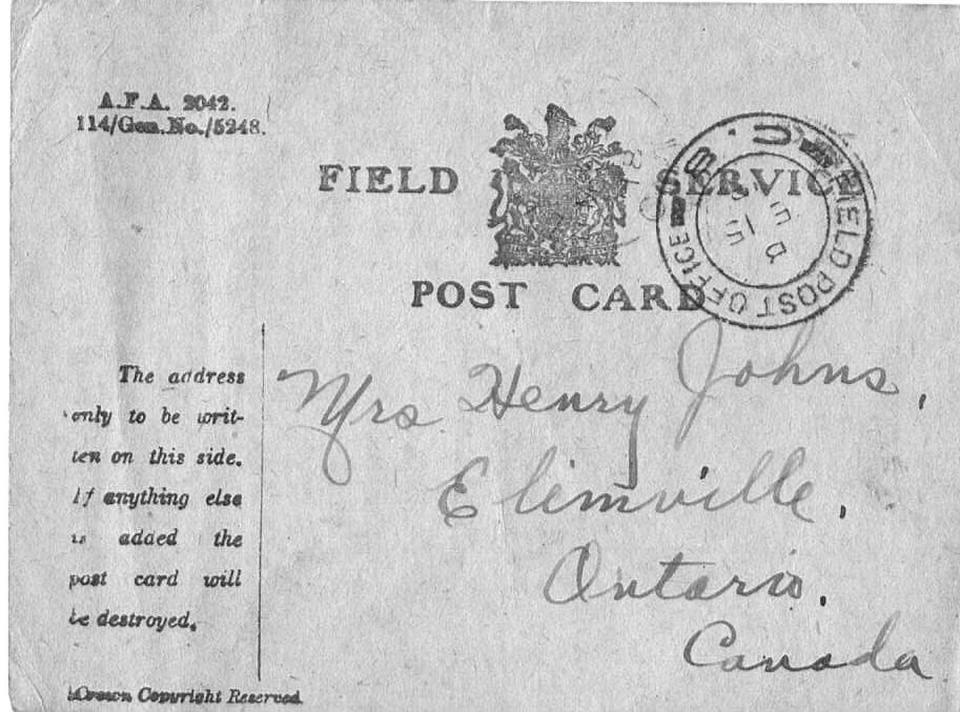 A.F.A. 2042.
114/Gen.No./5248.
FIELD SERVICE
POST CARD
FIELD POST OFFICE
The address
only to be writ-
ten on this side.
If anything else
is added the
post card will
be destroyed.
Mrs Henry Johns,
Elimville,
Ontario.
Canada
Crown Copyright Reserved.